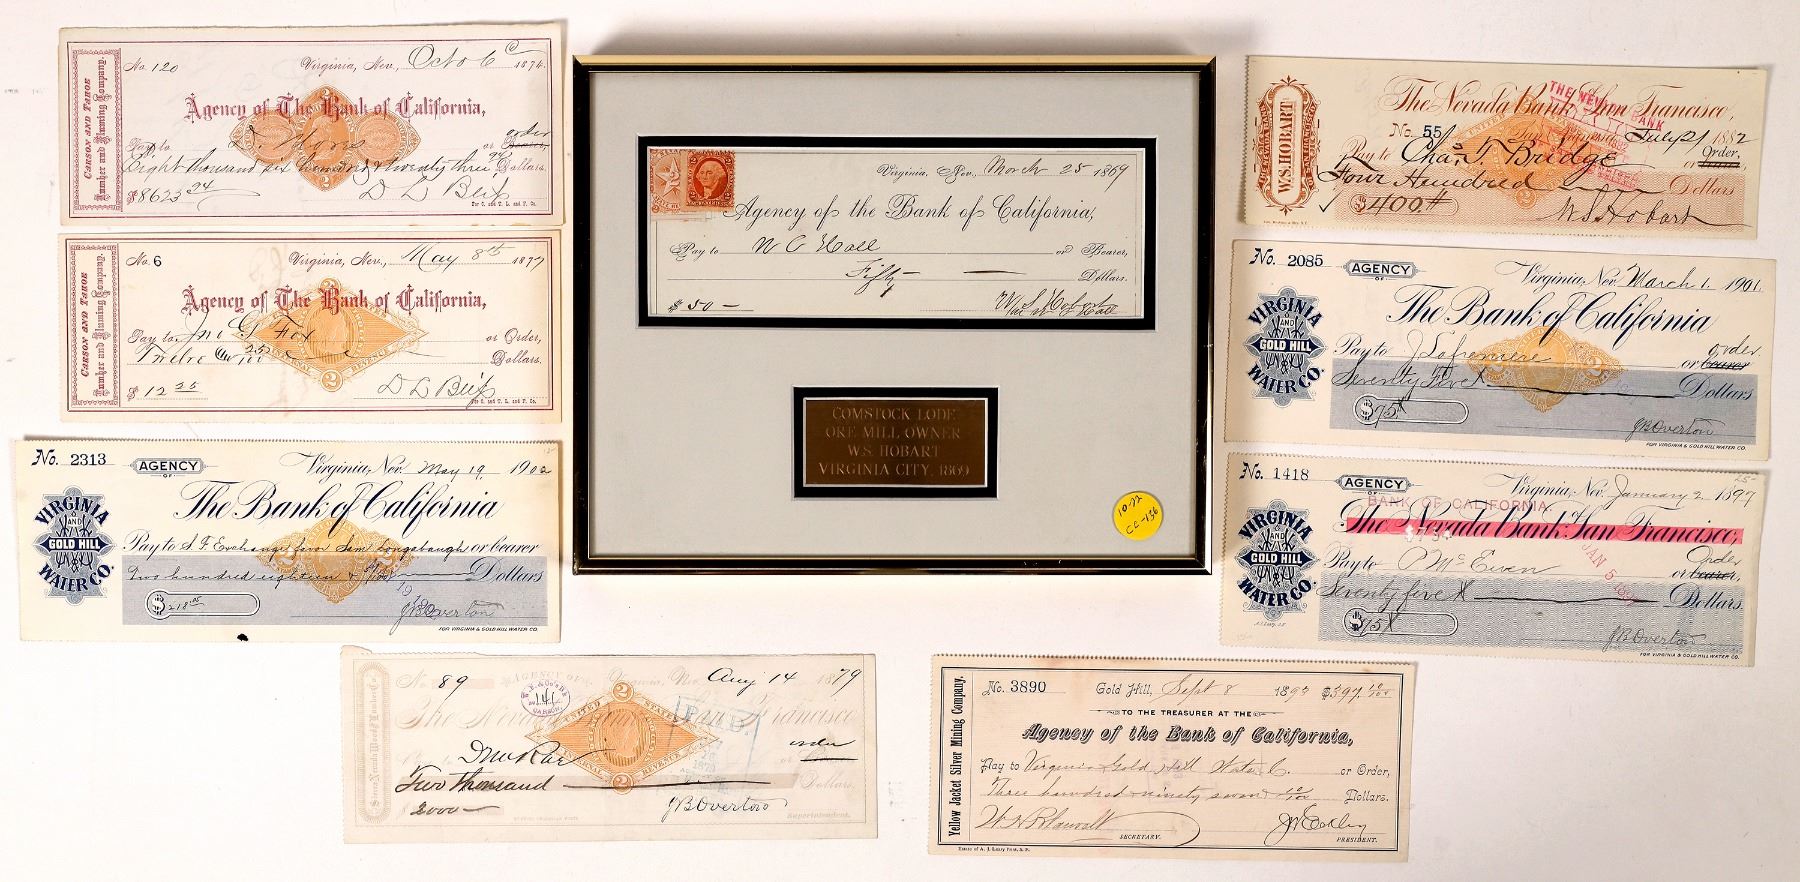 CARSON AND TAHOE
Lumber and Fluming Company.
No. 120 Virginia, Nev., Octo 6 1874
Agency of The Bank of California,
Pay to or order Bearer,
Eight thousand six hundred & twenty three 24 Dollars.
$8623 24 D L Bliss
For C. and T. L. and F. Co.
CARSON AND TAHOE
Lumber and Fluming Company.
No. 6 Virginia, Nev., May 8th 1877
Agency of The Bank of California,
Pay to Jno G Fox or Order,
Twelve and 25 Dollars.
$12 25 D L Bliss
For C. and T. L. and F. Co.
No. 2313 AGENCY OF Virginia, Nev. May 19, 1902
The Bank of California
VIRGINIA AND GOLD HILL WATER CO.
Pay to S. F. Exchange favor Sam Longabaugh or bearer
Two hundred eighteen & 05/100 Dollars
$218.05 JB Overton
FOR VIRGINIA & GOLD HILL WATER CO.
No. 89 AGENCY OF Virginia, Nev. Aug 14 1879
The Nevada Bank of San Francisco
UNITED STATES INTERNAL REVENUE
PAID
or order
Two thousand Dollars
$2000 JB Overton
Superintendent.
Virginia, Nev., March 25 1869
Agency of the Bank of California,
Pay to W C Hall or Bearer,
Fifty Dollars.
$50 Wm S Hobart
COMSTOCK LODE
ORE MILL OWNER
W.S. HOBART
VIRGINIA CITY, 1869
10-22
CC-136
W.S. HOBART
The Nevada Bank of San Francisco,
THE NEVADA BANK
No. 55 San Francisco, July 21 1882
Pay to Chas. F. Bridge or Order, bearer
Four Hundred Dollars
$400.# W.S. Hobart
No. 2085 AGENCY OF Virginia, Nev. March 1. 1901
The Bank of California
VIRGINIA AND GOLD HILL WATER CO.
Pay to J Lafreniere or order bearer
Seventy Five Dollars
$75 JB Overton
FOR VIRGINIA & GOLD HILL WATER CO.
No. 1418 AGENCY OF Virginia, Nev. January 2 1897
BANK OF CALIFORNIA.
The Nevada Bank of San Francisco,
VIRGINIA AND GOLD HILL WATER CO.
JAN 5 1897
Pay to P McEwen or Order bearer,
Seventy five Dollars.
$75 JB Overton
FOR VIRGINIA & GOLD HILL WATER CO.
Yellow Jacket Silver Mining Company.
No. 3890 Gold Hill, Sept 8 1893 $397. 10/100
TO THE TREASURER AT THE
Agency of the Bank of California,
Pay to Virginia Gold Hill Water Co. or Order,
Three hundred ninety seven 10/100 Dollars.
SECRETARY. PRESIDENT.